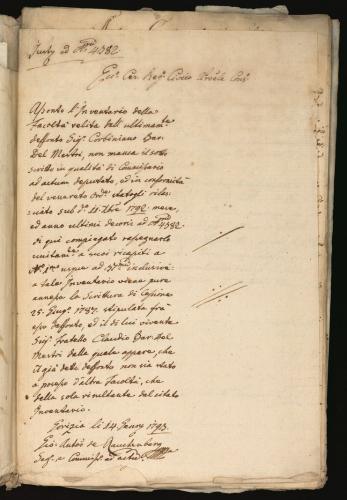 ad Nrũ 4382
Assonto l'Inventario della
Facoltà relita dell' ultimamte
deffonto Sigr Corbiniano Bar:
Del Mestri, non manca il sotto
scritto in qualità di Commissario
ad actum deputato, ed in conformità
del venerato statogli rila-
sciato sub do 1792 mese,
ed anno ultimi decorsi ad Nrũ 4382.
di quì compiegato rassegnarlo
a suoi ricapiti a
No 1mo usque ad inclusive:
a tale Inventario viene pure
annessa la Scrittura di Cessione
25. Giugo 1787. stipulata frà
esso deffonto, ed il di lui vivente
Sigr Fratello Claudio Bar: del
Mestri dalla quale appare, che
il già detto deffonto non sia stato
in possesso d'altra Facoltà, che
della sola risultante del citato
Inventario.
Gorizia li 14 Janry 1793.
Gio: Antõ de Rauchenberg